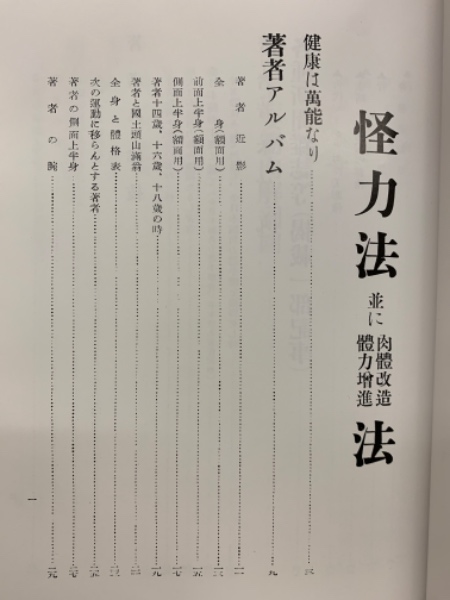 怪力法 並に 肉體改造 體力增進 法
健康は萬能なり
著者アルバム 九
著者近影
全身(額面用)
前面上半身(額面用) 一五
側面上半身(額面用) 一七
著者十四歳、十六歳、十八歳の時 一九
著者と國士頭山滿翁
全身と體格表
次の運動に移らんとする著者 二五
著者の側面上半身 二七
著者の腕 二九
一